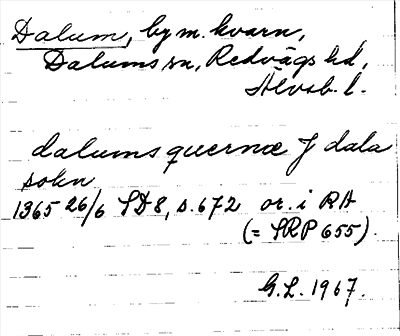 Dalum, by m. kvarn,
Dalums sn, Redvägs hd,
Älvsb. l.
dalumsquernæ J dala
sokn
1365 26/6 SD 8, s. 672 or. i RA
(= SRP 655).
G.L. 1967.